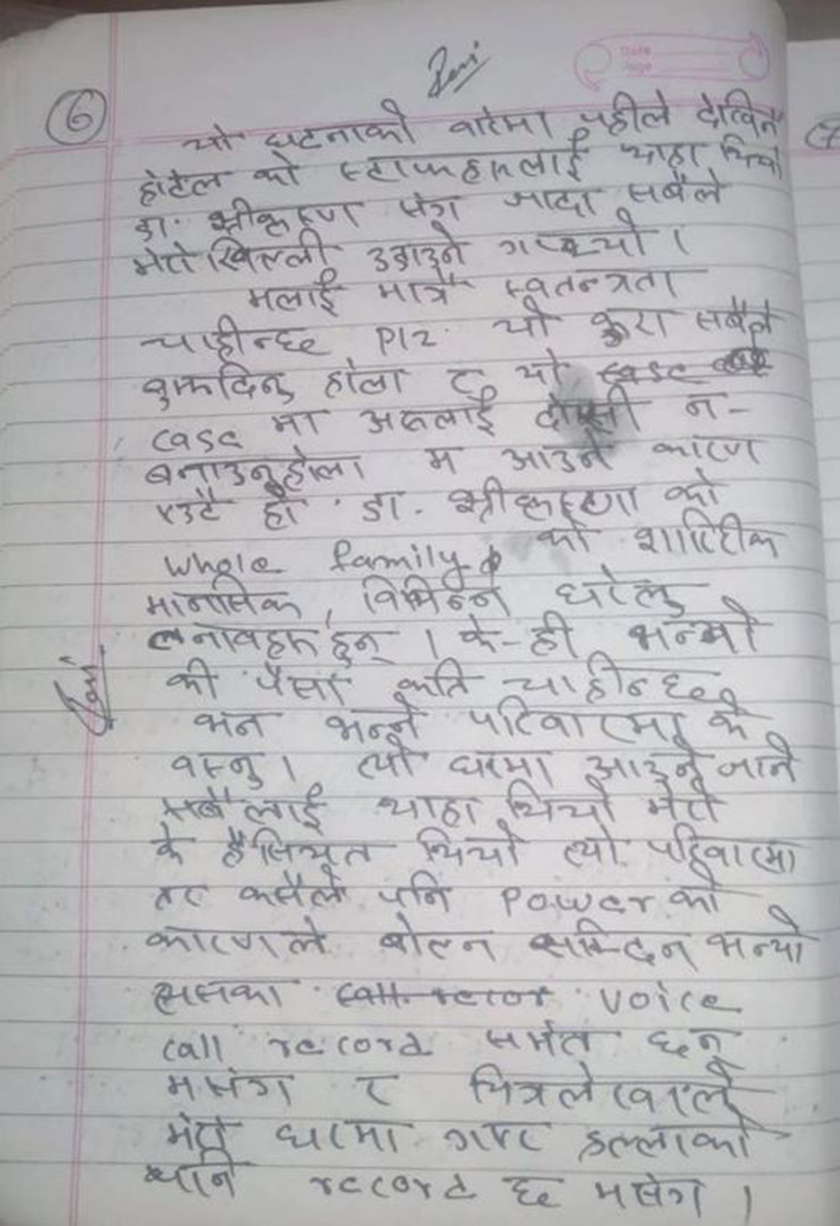 6
यो घटनाको बारेमा पहीले देखिनै
होटेल को स्टाफहरुलाई थाहा थियो
डा. श्रीकृष्ण संग जादा सबैले
मेरो खिल्ली उडाउने गर्थ्यो ।
मलाई मात्रै स्वतन्त्रता
चाहीन्छ Plz. यो कुरा सबैले
बुझदिनु होला र यो case
case मा अरुलाई दोषी न-
बनाउनुहोला म आउने कारण
एउटै हो डा. श्रीकृष्ण को
whole family को शारिरीक
मानसिक, विभिन्न घरेलु
तनावहरु हुन् । के-ही भन्यो
की पैसा कति चाहीन्छ
भन भन्ने परिवारमा के
बस्नु । त्यो घरमा आउने जाने
सबैलाई थाहा थियो मेरो
के हैसियत थियो त्यो परिवारमा
तर कसैले पनि Power को
कारणले बोल्न सक्दिन भन्यो
voice
call record समेत छन्
मसंग र
मेरो घरमा गएर हल्लाको
पनि record छ मसंग ।